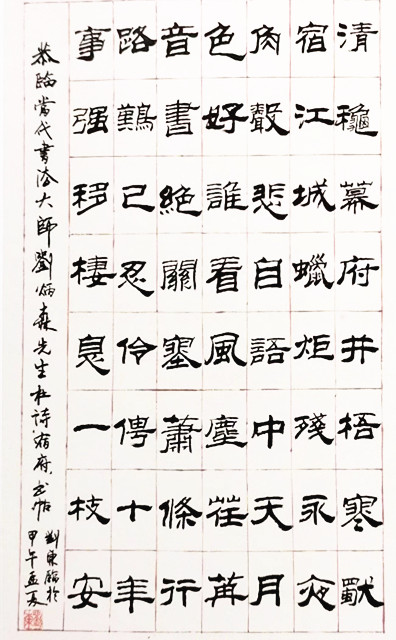 清穐幕府井梧寒獨
宿江城蠟炬殘永夜
角聲悲自語中天月
色好誰看風塵荏苒
音書絕關塞蕭條行
路難已忍伶俜十年
事强移棲息一枝安
恭臨當代書法大師劉炳森先生杜詩宿府書帖
劉東臨於
甲午孟夏